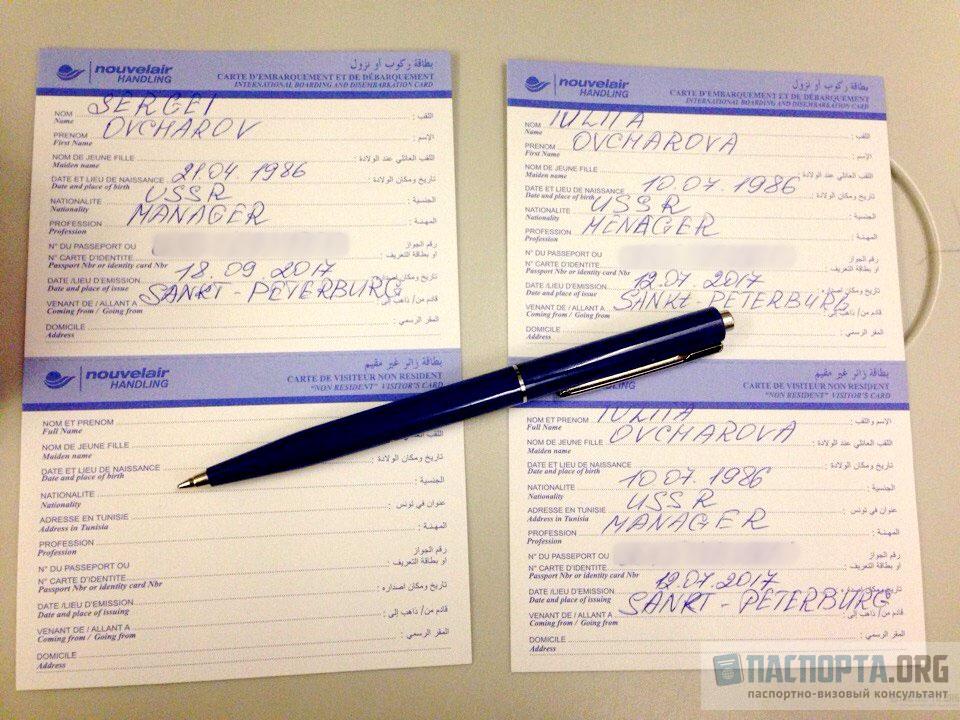 nouvelair
HANDLING
بطاقة ركوب أو نزول
CARTE D'EMBARQUEMENT ET DE DÉBARQUEMENT
INTERNATIONAL BOARDING AND DISEMBARKATION CARD
NOM SERGEI اللقب :
Name
PRENOM OVCHAROV الإسم :
First Name
NOM DE JEUNE FILLE اللقب العائلي عند الولادة :
Maiden name
DATE ET LIEU DE NAISSANCE 21.04.1986 تاريخ ومكان الولادة :
Date and place of birth
NATIONALITE USSR الجنسية :
Nationality
PROFESSION MANAGER المهنة :
Profession
N° DU PASSEPORT OU رقم الجواز
N° CARTE D'IDENTITE أو بطاقة التعريف :
Passport Nbr or identity card Nbr
DATE /LIEU D'EMISSION 18.09.2017 تاريخ ومكان اصداره :
Date and place of issue
VENANT DE / ALLANT A SANKT-PETERBURG قادم من/ ذاهب إلى :
Coming from / Going from
DOMICILE المقر الرسمي :
Address
nouvelair
HANDLING
بطاقة زائر غير مقيم
CARTE DE VISITEUR NON RESIDENT
"NON RESIDENT" VISITOR'S CARD
NOM ET PRENOM
Full Name
NOM DE JEUNE FILLE اللقب العائلي عند الولادة :
Maiden name
DATE ET LIEU DE NAISSANCE تاريخ ومكان الولادة :
Date and place of birth
NATIONALITE الجنسية :
Nationality
ADRESSE EN TUNISIE عنوان في تونس :
Address in Tunisia
PROFESSION المهنة :
Profession
N° DU PASSEPORT OU رقم الجواز
N° CARTE D'IDENTITE أو بطاقة التعريف :
Passport Nbr or identity card Nbr
DATE /LIEU D'EMISSION تاريخ ومكان اصداره :
Date and place of issuing
VENANT DE / ALLANT A قادم من/ ذاهب إلى :
Coming from / Going from
DOMICILE المقر الرسمي :
Address
nouvelair
HANDLING
بطاقة ركوب أو نزول
CARTE D'EMBARQUEMENT ET DE DÉBARQUEMENT
INTERNATIONAL BOARDING AND DISEMBARKATION CARD
NOM IULIIA اللقب :
Name
PRENOM OVCHAROVA الإسم :
First Name
NOM DE JEUNE FILLE اللقب العائلي عند الولادة :
Maiden name
DATE ET LIEU DE NAISSANCE 10.07.1986 تاريخ ومكان الولادة :
Date and place of birth
NATIONALITE USSR الجنسية :
Nationality
PROFESSION MENAGER المهنة :
Profession
N° DU PASSEPORT OU رقم الجواز
N° CARTE D'IDENTITE أو بطاقة التعريف :
Passport Nbr or identity card Nbr
DATE /LIEU D'EMISSION 12.07.2017 تاريخ ومكان اصداره :
Date and place of issue
VENANT DE / ALLANT A SANKT-PETERBURG قادم من/ ذاهب إلى :
Coming from / Going from
DOMICILE المقر الرسمي :
Address
بطاقة زائر غير مقيم
CARTE DE VISITEUR NON RESIDENT
"NON RESIDENT" VISITOR'S CARD
NOM ET PRENOM IULIIA الإسم واللقب :
Full Name
NOM DE JEUNE FILLE OVCHAROVA اللقب العائلي عند الولادة :
Maiden name
DATE ET LIEU DE NAISSANCE تاريخ ومكان الولادة :
Date and place of birth 10.07.1986
NATIONALITE الجنسية :
Nationality USSR
ADRESSE EN TUNISIE عنوان في تونس :
Address in Tunisia MANAGER
PROFESSION المهنة :
Profession
N° DU PASSEPORT OU رقم الجواز
N° CARTE D'IDENTITE أو بطاقة التعريف :
Passport Nbr or identity card Nbr 12.07.2017
DATE /LIEU D'EMISSION تاريخ ومكان اصداره :
Date and place of issuing SANKT-PETERBURG
VENANT DE / ALLANT A قادم من/ ذاهب إلى :
Coming from / Going from
DOMICILE المقر الرسمي :
Address
ПАСПОРТА.ORG
паспортно-визовый консультант